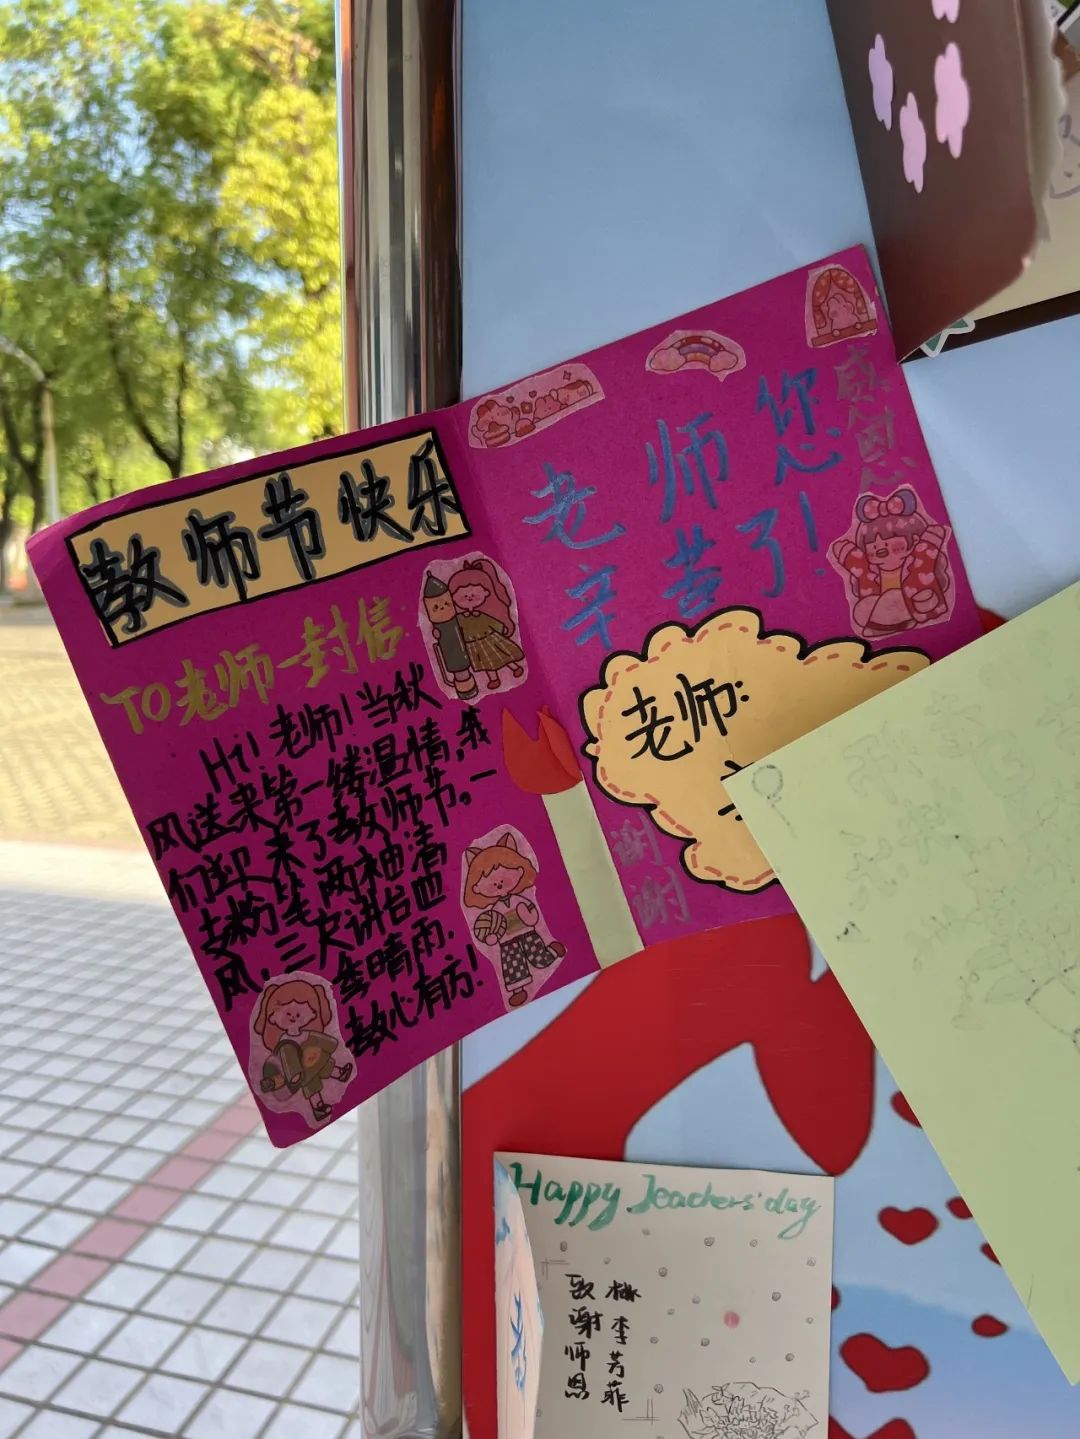 教师节快乐
TO老师一封信:
Hi!老师!当秋
风送来第一缕温情,我
们迎来了教师节。一
支粉笔两袖清
风,三尺讲台四
季晴雨.
教心有方!
老师您
辛苦了!
感恩
老师:
谢谢
Happy Teachers' day
桃李芳菲
致谢师恩